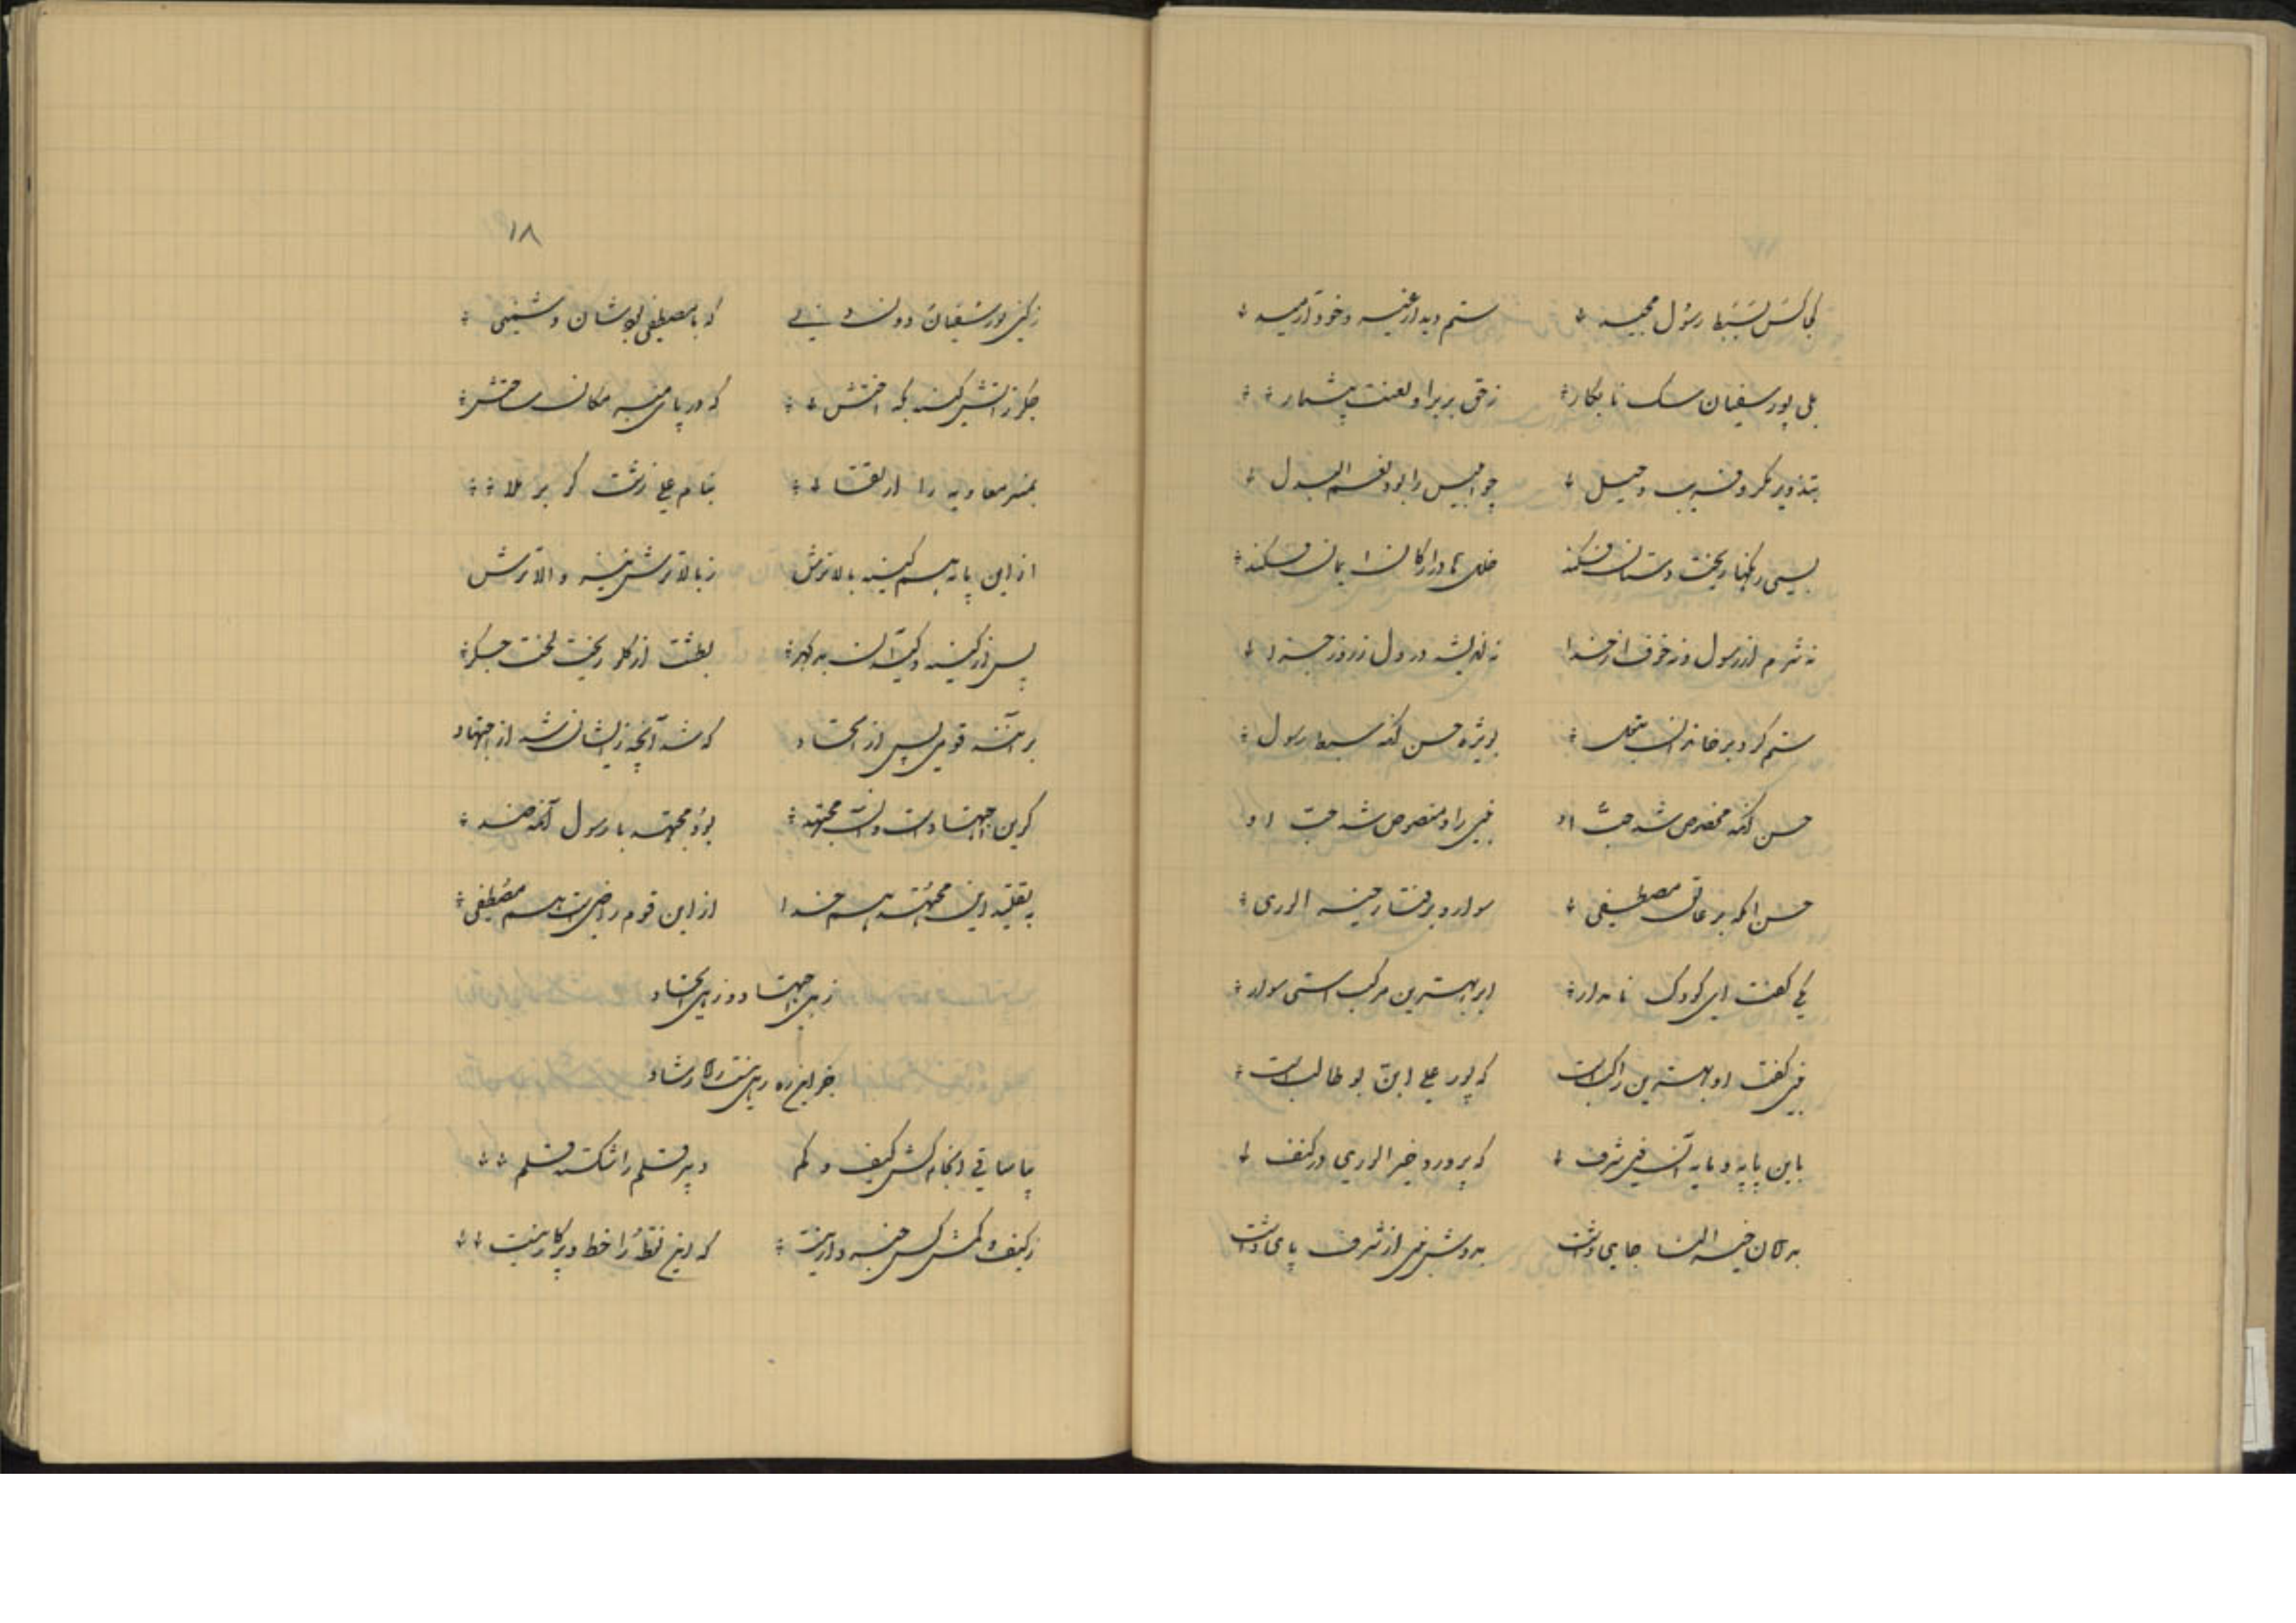 کجا کس بسبط رسول مجید ستم دید از غیر و خود آرمید
بلی پور سفیان سگ نابکار ز حق بر برا و لعنت بیشمار
بتذویر مکر و فریب و حیل چو ابلیس را بود نعم البدل
بسی رنگها ریخت دستان فکند خلل تا در ارکان ایمان فکند
نه شرم از رسول و نه خوف از خدا نه اندیشه در دل ز روز جزا
ستم کرد بر خاندان بتول بویژه حسن آنکه سبط رسول
حسن آنکه مخصوص شد حب او نبی را و منصوص شد حب او
حسن آنکه بر عاتق مصطفی سوار و برفتار خیر الوری
یکی گفت ای کودک نامدار ابر بهترین مرکب استی سوار
نبی گفت او بهترین راکب است که پور علی ابن بو طالب است
باین پایه و مایه آن شرف که پرورد خیر الوری در کنف
بدامان خیر النسا جای داشت بدوش نبی از شرف پای داشت
۱۸
ز کین پور سفیان دون دنی که با مصطفی بودشان دشمنی
جگر ز آتش کینه بگداختش که در پای منبر مکان ساختش
بمنبر معاویه را ارتقا بنام علی زشت گو بر ملا
از این پایه هم کینه بالاترش ز بالاترش نیز والاترش
پس از کینه و کید آن بد گهر بطشت از گلو ریخت لخت جگر
بر آنند قومی پس از اتحاد که شد آنچه زیشان شد از اجتهاد
گر این اجتهاد است و آن مجتهد بود مجتهد با رسول آنکه ضد
بتقلید این مجتهد هم خدا از این قوم راضی است هم مصطفی
زهی اجتهاد و زهی اتحاد
جز این ره رهی نیست کارشاد
بیا ساقی از جام کش کیف و کم دبیر قلم را شکسته قلم
ز کیف و کمش کس خبر دار نیست که این نقطه را خط و پرگار نیست